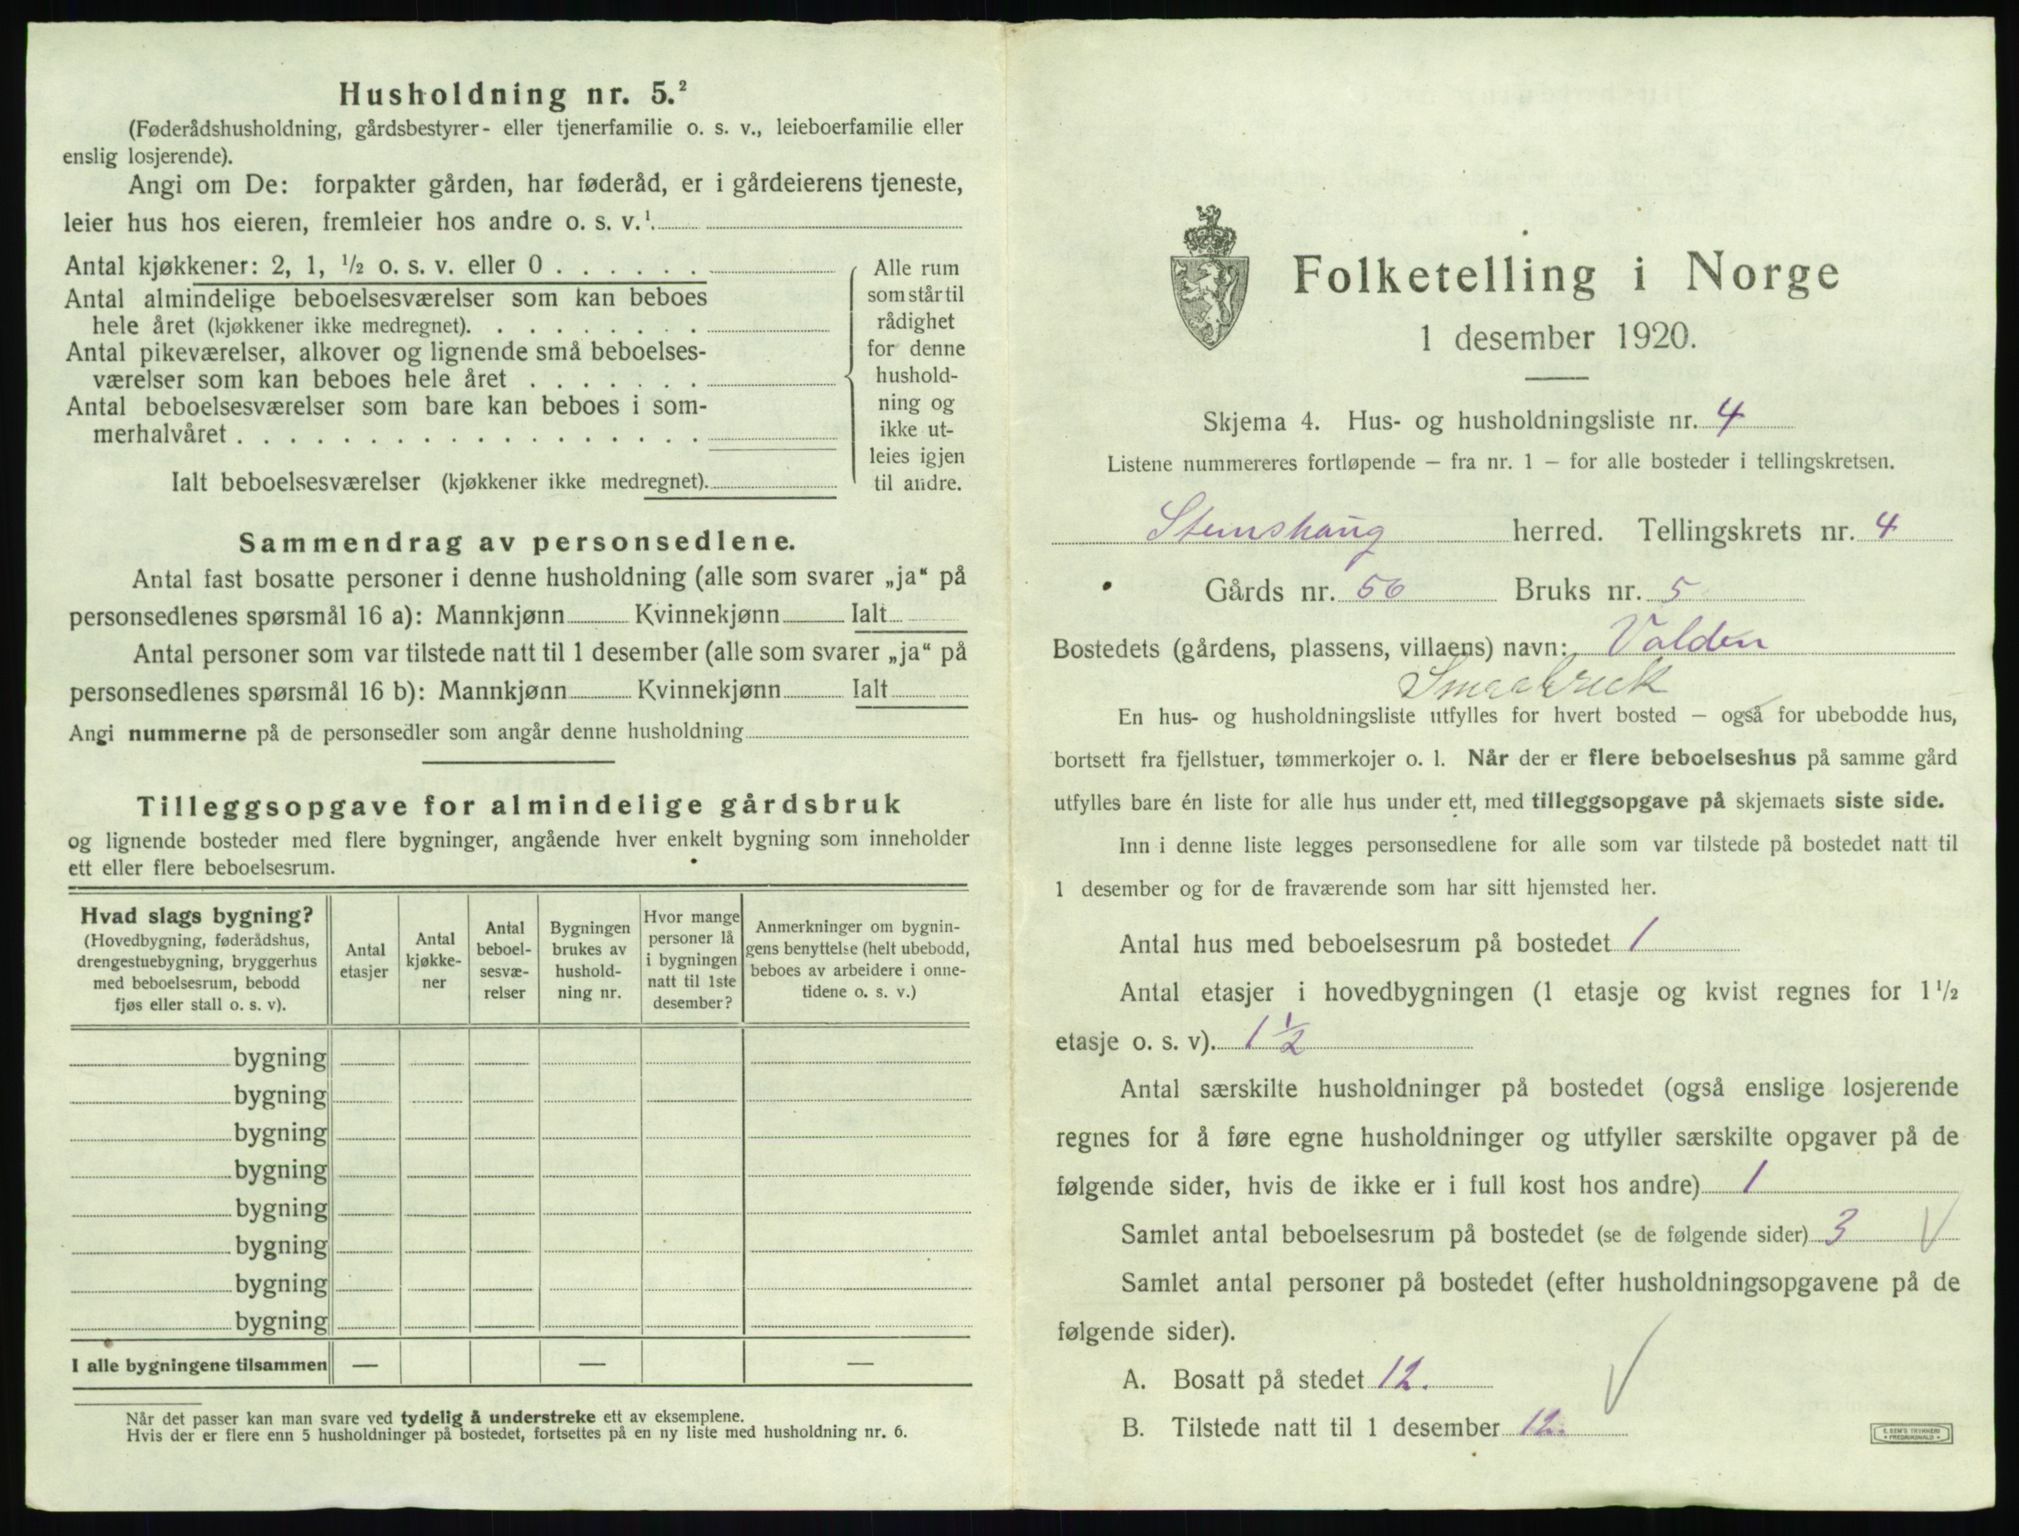 Husholdning nr. 5.²
(Føderådshusholdning, gårdsbestyrer- eller tjenerfamilie o. s. v., leieboerfamilie eller
enslig losjerende).
Angi om De: forpakter gården, har føderåd, er i gårdeierens tjeneste,
leier hus hos eieren, fremleier hos andre o. s. v.¹
Antal kjøkkener: 2, 1, ½ o. s. v. eller 0 . . . . . .
Antal almindelige beboelsesværelser som kan beboes
hele året (kjøkkener ikke medregnet). . . . . . . . .
Antal pikeværelser, alkover og lignende små beboelses-
værelser som kan beboes hele året . . . . . . .
Antal beboelsesværelser som bare kan beboes i som-
merhalvåret . . . . . . . . . . . . . . . . . .
Ialt beboelsesværelser (kjøkkener ikke medregnet).
Alle rum
som står til
rådighet
for denne
hushold-
ning og
ikke ut-
leies igjen
til andre.
Sammendrag av personsedlene.
Antal fast bosatte personer i denne husholdning (alle som svarer „ja“ på
personsedlenes spørsmål 16 a): Mannkjønn Kvinnekjønn Ialt
Antal personer som var tilstede natt til 1 desember (alle som svarer „ja“ på
personsedlenes spørsmål 16 b): Mannkjønn Kvinnekjønn Ialt
Angi nummerne på de personsedler som angår denne husholdning
Tilleggsopgave for almindelige gårdsbruk
og lignende bosteder med flere bygninger, angående hver enkelt bygning som inneholder
ett eller flere beboelsesrum.
Hvad slags bygning?
(Hovedbygning, føderådshus,
drengestuebygning, bryggerhus
med beboelsesrum, bebodd
fjøs eller stall o. s. v).
Antal
etasjer
Antal
kjøkke-
ner
Antal
beboel-
sesvæ-
relser
Bygningen
brukes av
hushold-
ning nr.
Hvor mange
personer lå
i bygningen
natt til 1ste
desember?
Anmerkninger om bygnin-
gens benyttelse (helt ubebodd,
beboes av arbeidere i onne-
tidene o. s. v.)
bygning
bygning
bygning
bygning
bygning
bygning
bygning
bygning
I alle bygningene tilsammen — — —
Når det passer kan man svare ved tydelig å understreke ett av eksemplene.
Hvis der er flere enn 5 husholdninger på bostedet, fortsettes på en ny liste med husholdning nr. 6.
Folketelling i Norge
1 desember 1920.
Skjema 4. Hus- og husholdningsliste nr. 4
Listene nummereres fortløpende — fra nr. 1 — for alle bosteder i tellingskretsen.
Stemshaug herred. Tellingskrets nr. 4
Gårds nr. 56 Bruks nr. 5
Bostedets (gårdens, plassens, villaens) navn: Valden
Smaabruk
En hus- og husholdningsliste utfylles for hvert bosted — også for ubebodde hus,
bortsett fra fjellstuer, tømmerkojer o. l. Når der er flere beboelseshus på samme gård
utfylles bare én liste for alle hus under ett, med tilleggsopgave på skjemaets siste side.
Inn i denne liste legges personsedlene for alle som var tilstede på bostedet natt til
1 desember og for de fraværende som har sitt hjemsted her.
Antal hus med beboelsesrum på bostedet 1
Antal etasjer i hovedbygningen (1 etasje og kvist regnes for 1½
etasje o. s. v). 1½
Antal særskilte husholdninger på bostedet (også enslige losjerende
regnes for å føre egne husholdninger og utfyller særskilte opgaver på de
følgende sider, hvis de ikke er i full kost hos andre) 1
Samlet antal beboelsesrum på bostedet (se de følgende sider) 3
Samlet antal personer på bostedet (efter husholdningsopgavene på de
følgende sider).
A. Bosatt på stedet 12.
B. Tilstede natt til 1 desember 12.
E. SEM'S TRYKKERI
FREDRIKSHALD